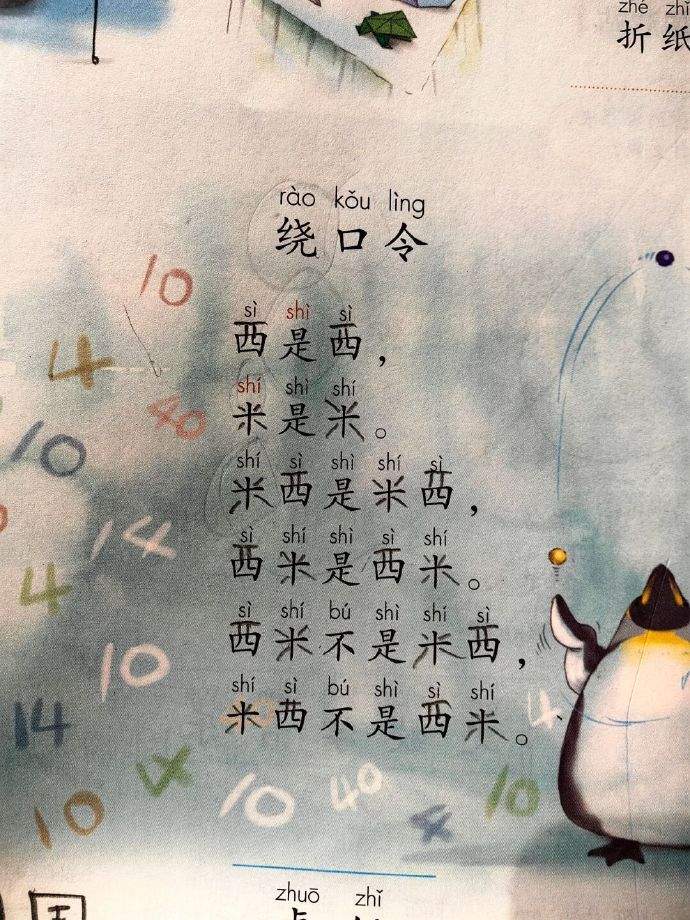 zhé zhǐ
折纸
rào kǒu lìng
绕口令
10
sì shì sì
西是西，
4
shí shì shí
米是米。
40
10
shí sì shì shí sì
米西是米西，
14
sì shí shì sì shí
西米是西米。
4
sì shí bú shì shí sì
西米不是米西，
10
shí sì bú shì sì shí
米西不是西米。
4
14
10
10
40
4
10
zhuō zhǐ